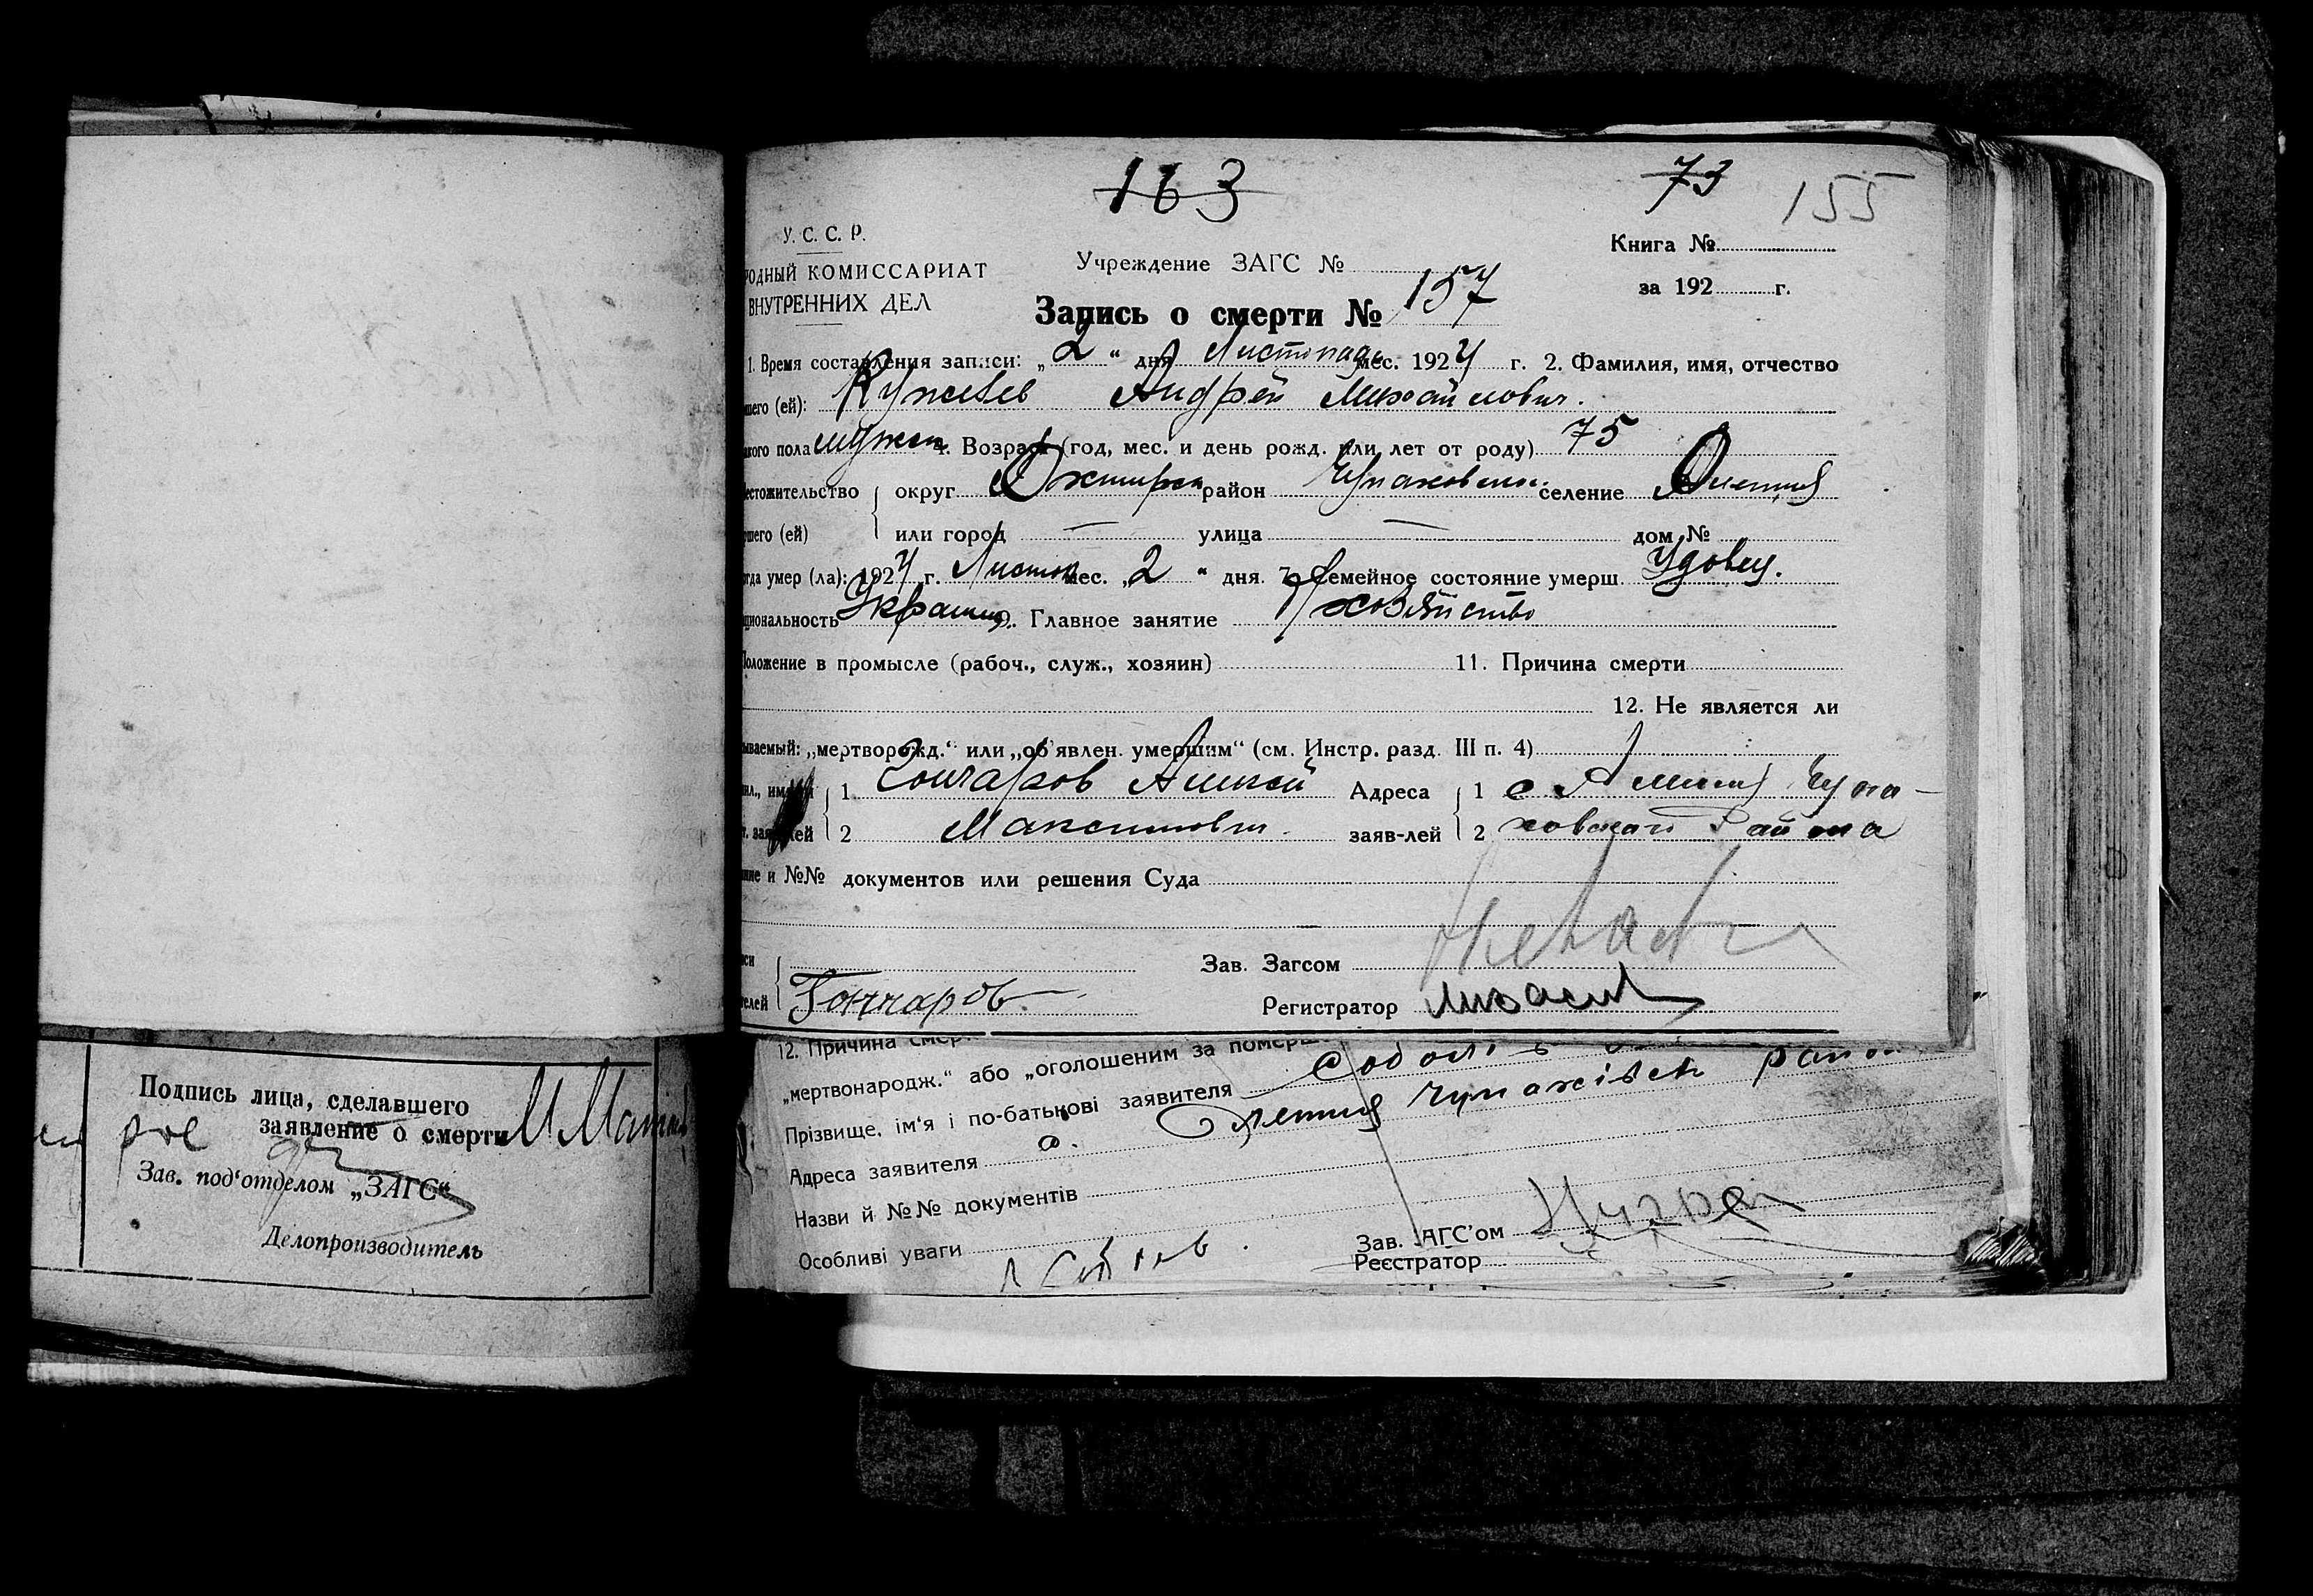 163
73 155
У. С. С. Р.
Книга №
РОДНЫЙ КОМИССАРИАТ
Учреждение ЗАГС №
ВНУТРЕННИХ ДЕЛ
за 192 г.
Запись о смерти № 157
1. Время составления записи: „2“ дня Листопад мес. 1924 г. 2. Фамилия, имя, отчество
шего (ей): Андрей Михайлович.
кого пола мужск. 4. Возраст (год, мес. и день рожд. или лет от роду) 75
естожительство округ Охтирск район Чупаховськ. селение
шего (ей) или город — улица — дом №
гда умер (ла): 1924 г. Листоп мес. „2“ дня. 7. Семейное состояние умерш. Удовец.
циональность Украинц 9. Главное занятие хозяйство
Положение в промысле (рабоч., служ., хозяин) 11. Причина смерти
12. Не является ли
ываемый: „мертворожд.“ или „об'явлен. умершим“ (см. Инстр. разд. III п. 4)
1 Гончаров Алексей Адреса 1 с Чупа-
2 Максимович заяв-лей 2 ховского Района
ние и №№ документов или решения Суда
Зав. Загсом
Гончаров Регистратор
12. Причина смер
„мертвонародж.“ або „оголошеним за померш
Прізвище, ім'я і по-батькові заявителя
Адреса заявителя с. Чупахівськ район
Назви й №№ документів
Особливі уваги
Зав. ЗАГС'ом
Реєстратор
Подпись лица, сделавшего
заявление о смерти
Зав. под'отделом „ЗАГС“
Делопроизводитель